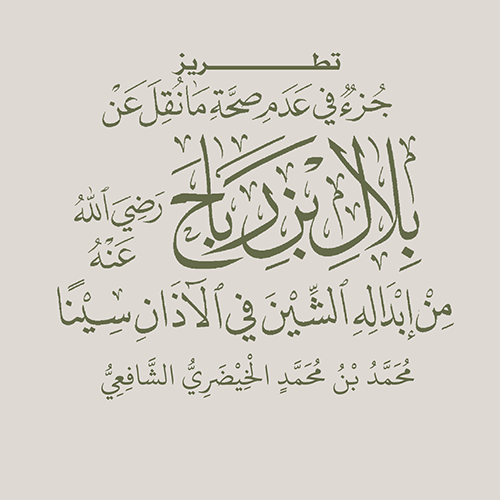 تطريز
جُزْءٌ فِي عَدَمِ صِحَّةِ مَا نُقِلَ عَنْ
بِلَالِ بْنِ رَبَاحَ رَضِيَ ٱللهُ عَنْهُ
مِنْ إِبْدَالِهِ ٱلشِّيْنَ فِي ٱلْآذَانِ سِيْنًا
مُحَمَّدُ بْنُ مُحَمَّدٍ الْخَيْضَرِيُّ الشَّافِعِيُّ